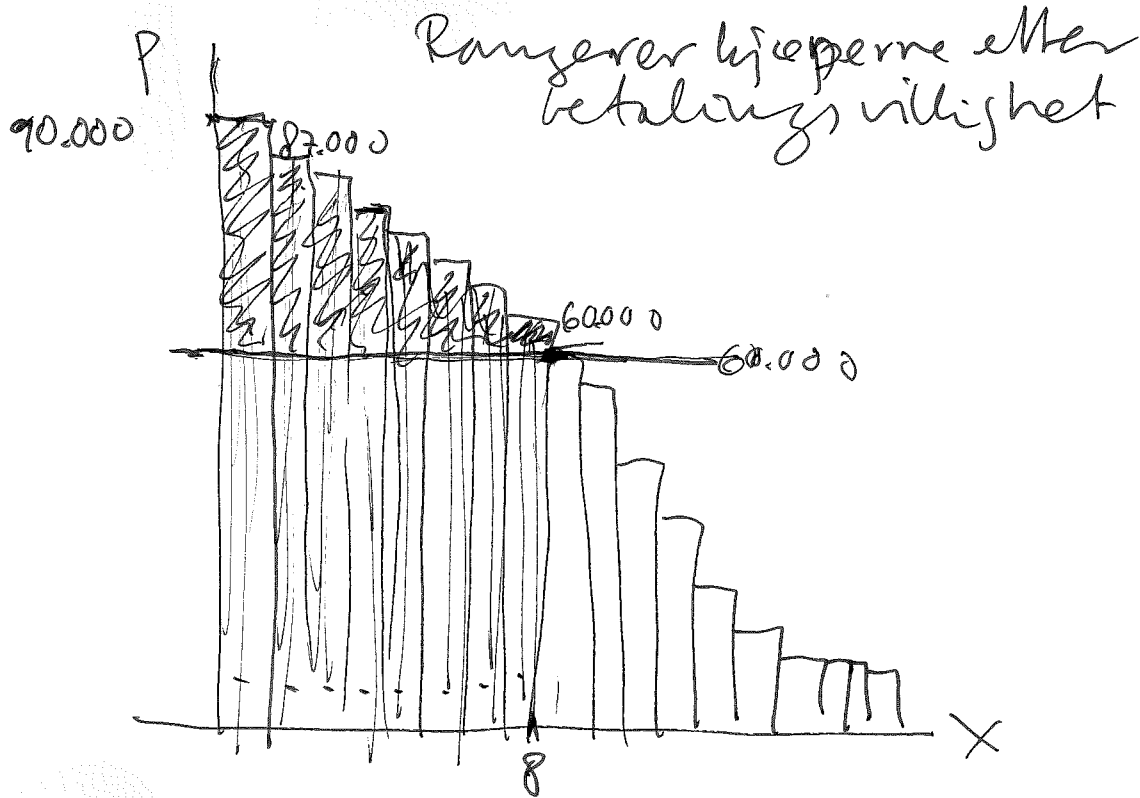 Rangerer kjøperne etter
betalingsvillighet
P
90.000
87.000
60.000
60.000
8
X